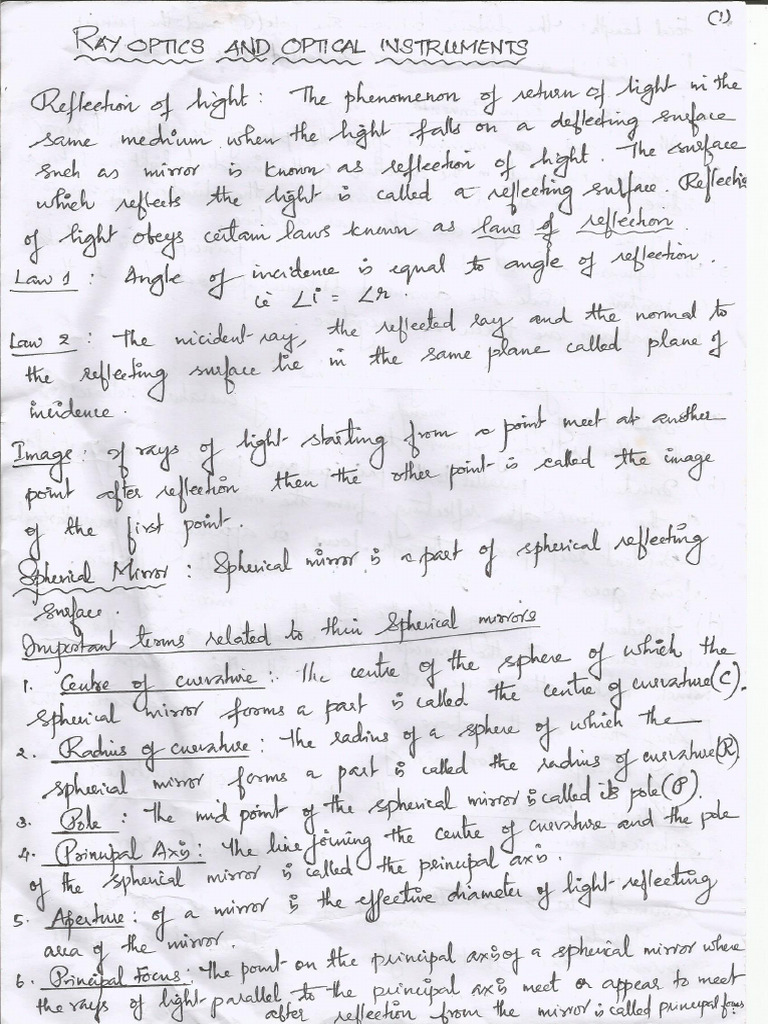 (1)
RAY OPTICS AND OPTICAL INSTRUMENTS
Reflection of light : The phenomenon of return of light in the
same medium when the light falls on a deflecting surface
such as mirror is known as reflection of light. The surface
which reflects the light is called a reflecting surface. Reflection
of light obeys certain laws known as laws of reflection.
Law 1 : Angle of incidence is equal to angle of reflection.
ie ∠i = ∠r.
Law 2 : The incident ray, the reflected ray and the normal to
the reflecting surface lie in the same plane called plane of
incidence.
Image : If rays of light starting from a point meet at another
point after reflection then the other point is called the image
of the first point.
Spherical Mirror : Spherical mirror is a part of spherical reflecting
surface.
Important terms related to thin Spherical mirrors
1. Centre of curvature : The centre of the sphere of which the
spherical mirror forms a part is called the centre of curvature (C).
2. Radius of curvature : The radius of a sphere of which the
spherical mirror forms a part is called the radius of curvature (R)
3. Pole : The mid point of the spherical mirror is called its pole (P).
4. Principal Axis : The line joining the centre of curvature and the pole
of the spherical mirror is called the principal axis.
5. Aperture : of a mirror is the effective diameter of light-reflecting
area of the mirror.
6. Principal Focus : The point on the principal axis of a spherical mirror where
the rays of light parallel to the principal axis meet or appear to meet
after reflection from the mirror is called principal focus